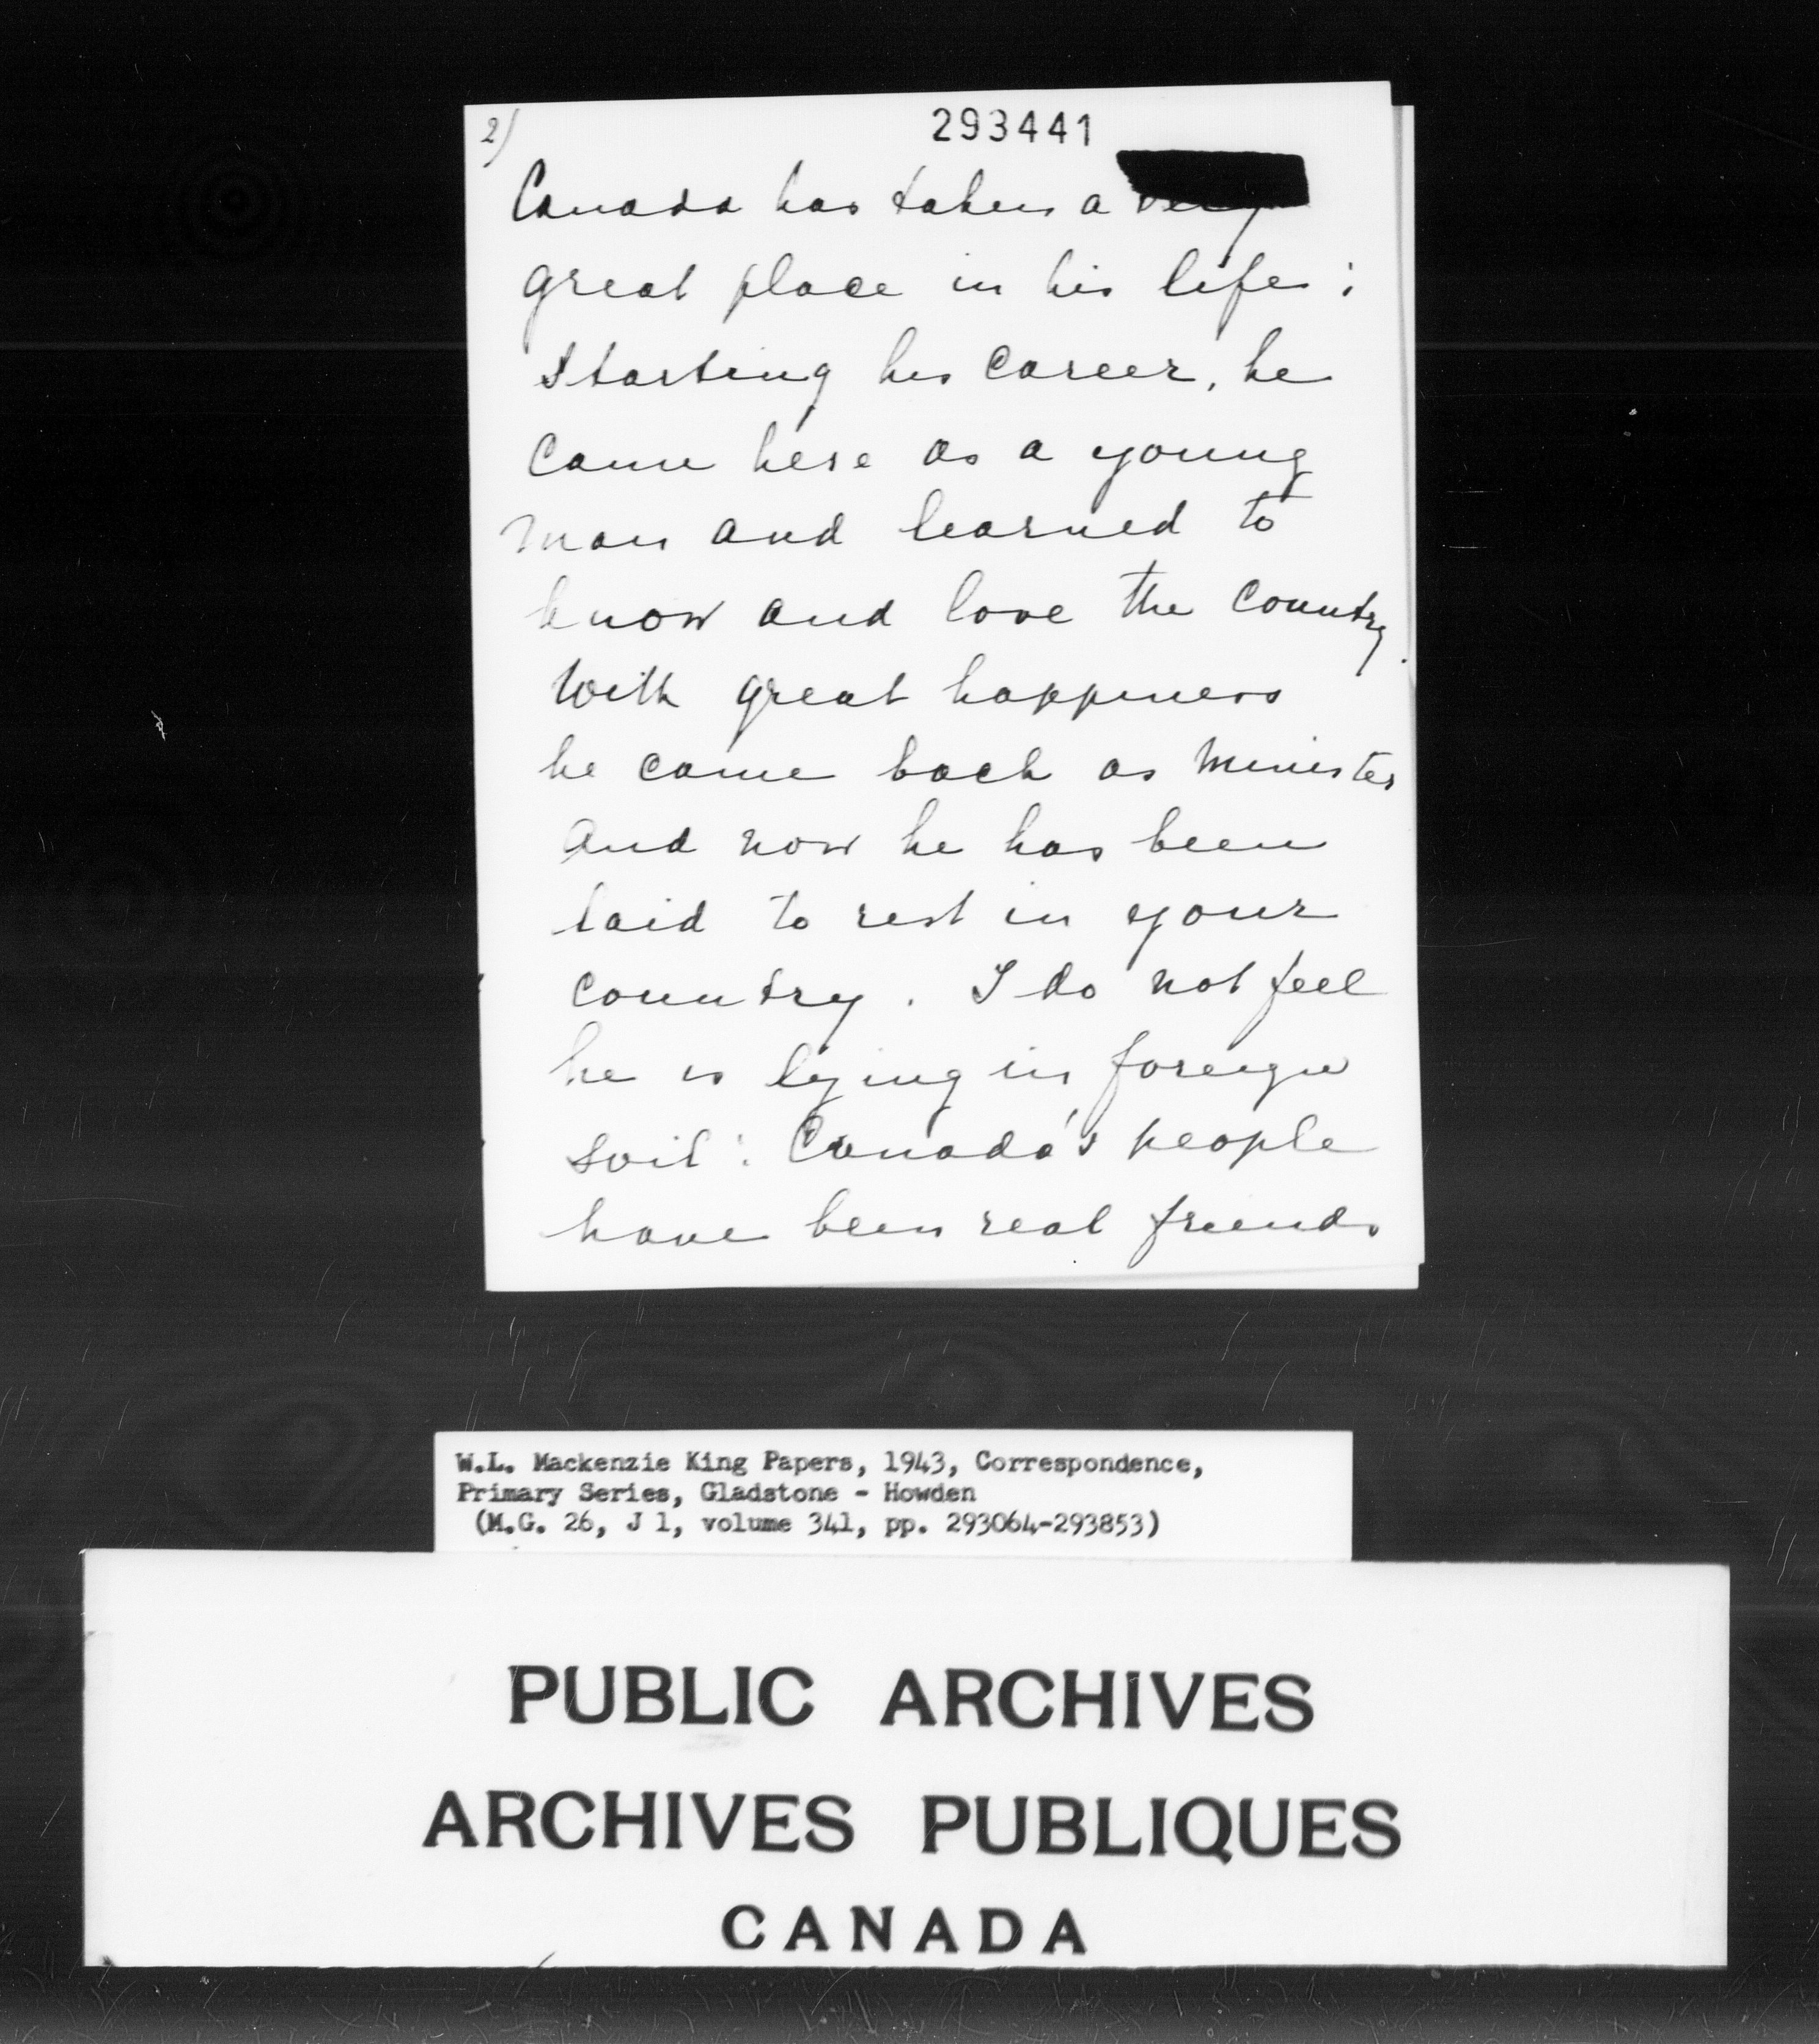 2)
293441
Canada has taken a very
great place in his life;
starting his career, he
came here as a young
man and learned to
know and love the country.
With great happiness
he came back as Minister
and now he has been
laid to rest in your
country. I do not feel
he is lying in foreign
soil: Canada's people
have been real friends
W.L. Mackenzie King Papers, 1943, Correspondence,
Primary Series, Gladstone - Howden
(M.G. 26, J 1, volume 341, pp. 293064-293853)
PUBLIC ARCHIVES
ARCHIVES PUBLIQUES
CANADA